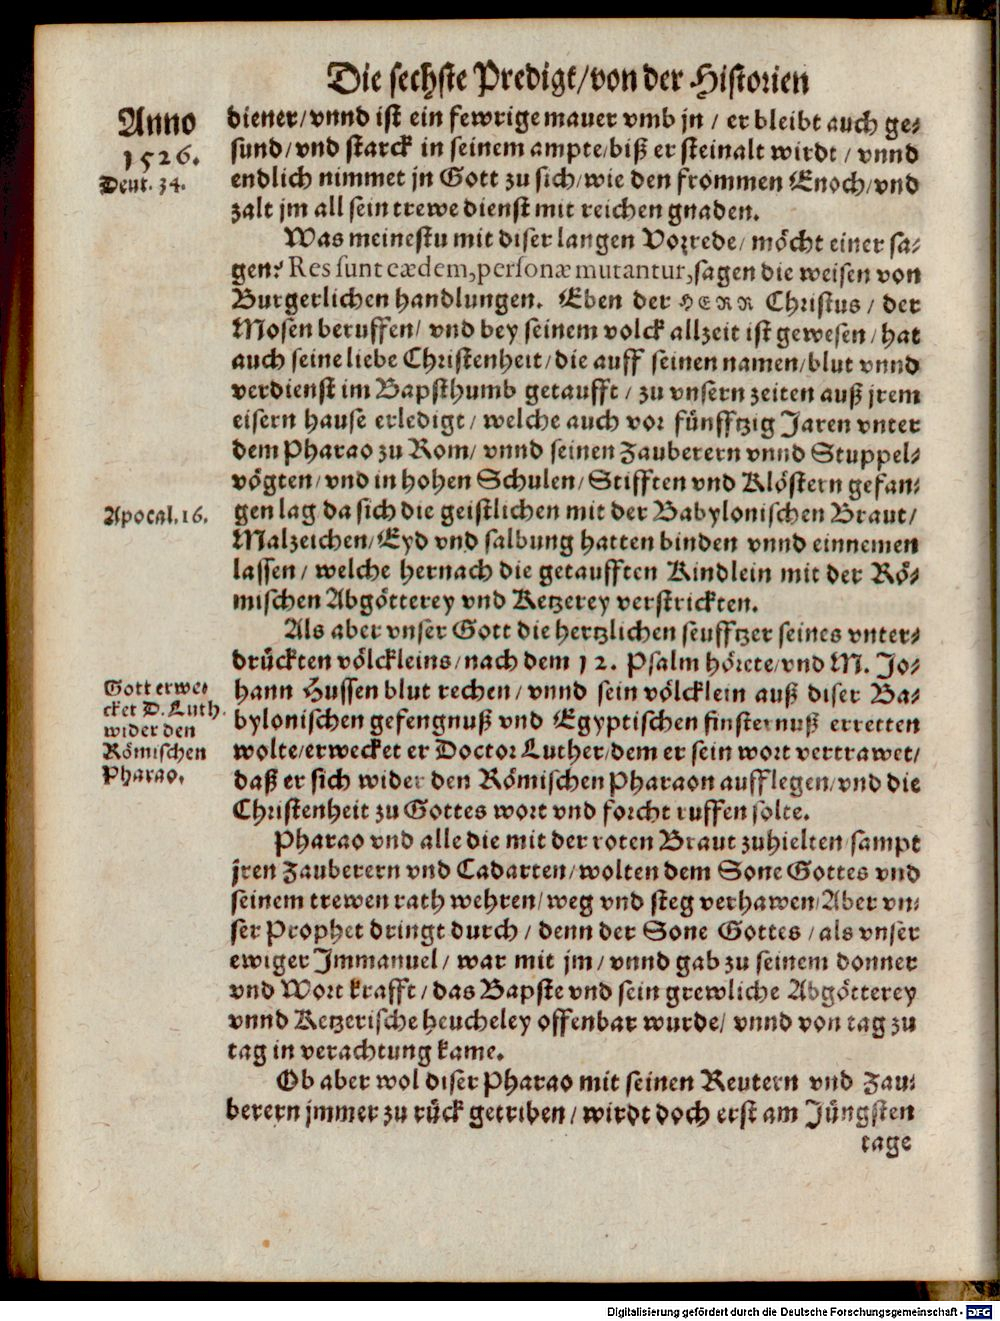 Die sechste Predigt/von der Historien
Anno
1526.
Deut. 34.
diener/vnnd ist ein fewrige mauer vmb jn / er bleibt auch ge⸗
sund/vnd starck in seinem ampte/biß er steinalt wirdt / vnnd
endlich nimmet jn Gott zu sich/wie den frommen Enoch/vnd
zalt jm all sein trewe dienst mit reichen gnaden.
Was meinestu mit diser langen Vorrede/ möcht einer sa⸗
gen? Res sunt eædem, personæ mutantur, sagen die weisen von
Burgerlichen handlungen. Eben der HERR Christus / der
Mosen beruffen/ vnd bey seinem volck allzeit ist gewesen / hat
auch seine liebe Christenheit/die auff seinen namen/blut vnnd
verdienst im Bapsthumb getaufft / zu vnsern zeiten auß jrem
eisern hause erledigt / welche auch vor fünfftzig Jaren vnter
dem Pharao zu Rom/ vnnd seinen Zauberern vnnd Stuppel⸗
vögten/vnd in hohen Schulen/Stifften vnd Klöstern gefan⸗
Apocal. 16.
gen lag da sich die geistlichen mit der Babylonischen Braut/
Malzeichen/Eyd vnd salbung hatten binden vnnd einnemen
lassen / welche hernach die getaufften Kindlein mit der Rö⸗
mischen Abgötterey vnd Ketzerey verstrickten.
Als aber vnser Gott die hertzlichen seufftzer seines vnter⸗
drückten völckleins/nach dem 12. Psalm hörete/vnd M. Jo⸗
Gott erwe⸗
cket D. Luth.
wider den
Römischen
Pharao.
hann Hussen blut rechen / vnnd sein völcklein auß diser Ba⸗
bylonischen gefengnuß vnd Egyptischen finsternuß erretten
wolte/erwecket er Doctor Luther/dem er sein wort vertrawet/
daß er sich wider den Römischen Pharaon aufflegen/vnd die
Christenheit zu Gottes wort vnd forcht ruffen solte.
Pharao vnd alle die mit der roten Braut zuhielten/sampt
jren Zauberern vnd Cadarten/wolten dem Sone Gottes vnd
seinem trewen rath wehren/weg vnd steg verhawen/Aber vn⸗
ser Prophet dringt durch / denn der Sone Gottes / als vnser
ewiger Jmmanuel / war mit jm / vnnd gab zu seinem donner
vnd Wort krafft / das Bapste vnd sein grewliche Abgötterey
vnnd Ketzerische heucheley offenbar wurde/ vnnd von tag zu
tag in verachtung kame.
Ob aber wol diser Pharao mit seinen Reutern vnd Zau⸗
berern jmmer zu rück getriben / wirdt doch erst am Jüngsten
tage
Digitalisierung gefördert durch die Deutsche Forschungsgemeinschaft - DFG